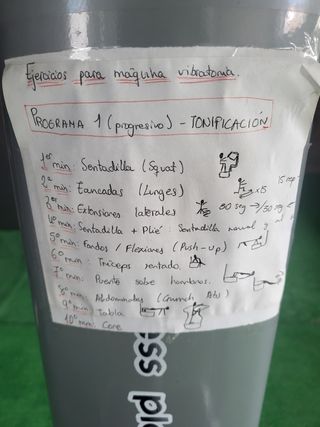 Ejercicios para máquina vibratoria.
PROGRAMA 1 (progresivo) - TONIFICACIÓN
1er min: Sentadilla (Squat)
2º min: Zancadas (Lunges) x15 15 resp
3er min: Extensiones laterales 30 seg → / 30 seg ←
4º min: Sentadilla + Plié: Sentadilla normal y
5º min: Fondos / Flexiones (Push-up)
6º min: Tríceps sentado.
7º min: Puente sobre hombros.
8º min: Abdominales (Crunch Abs)
9º min: Tabla
10º min: Core
ess pl